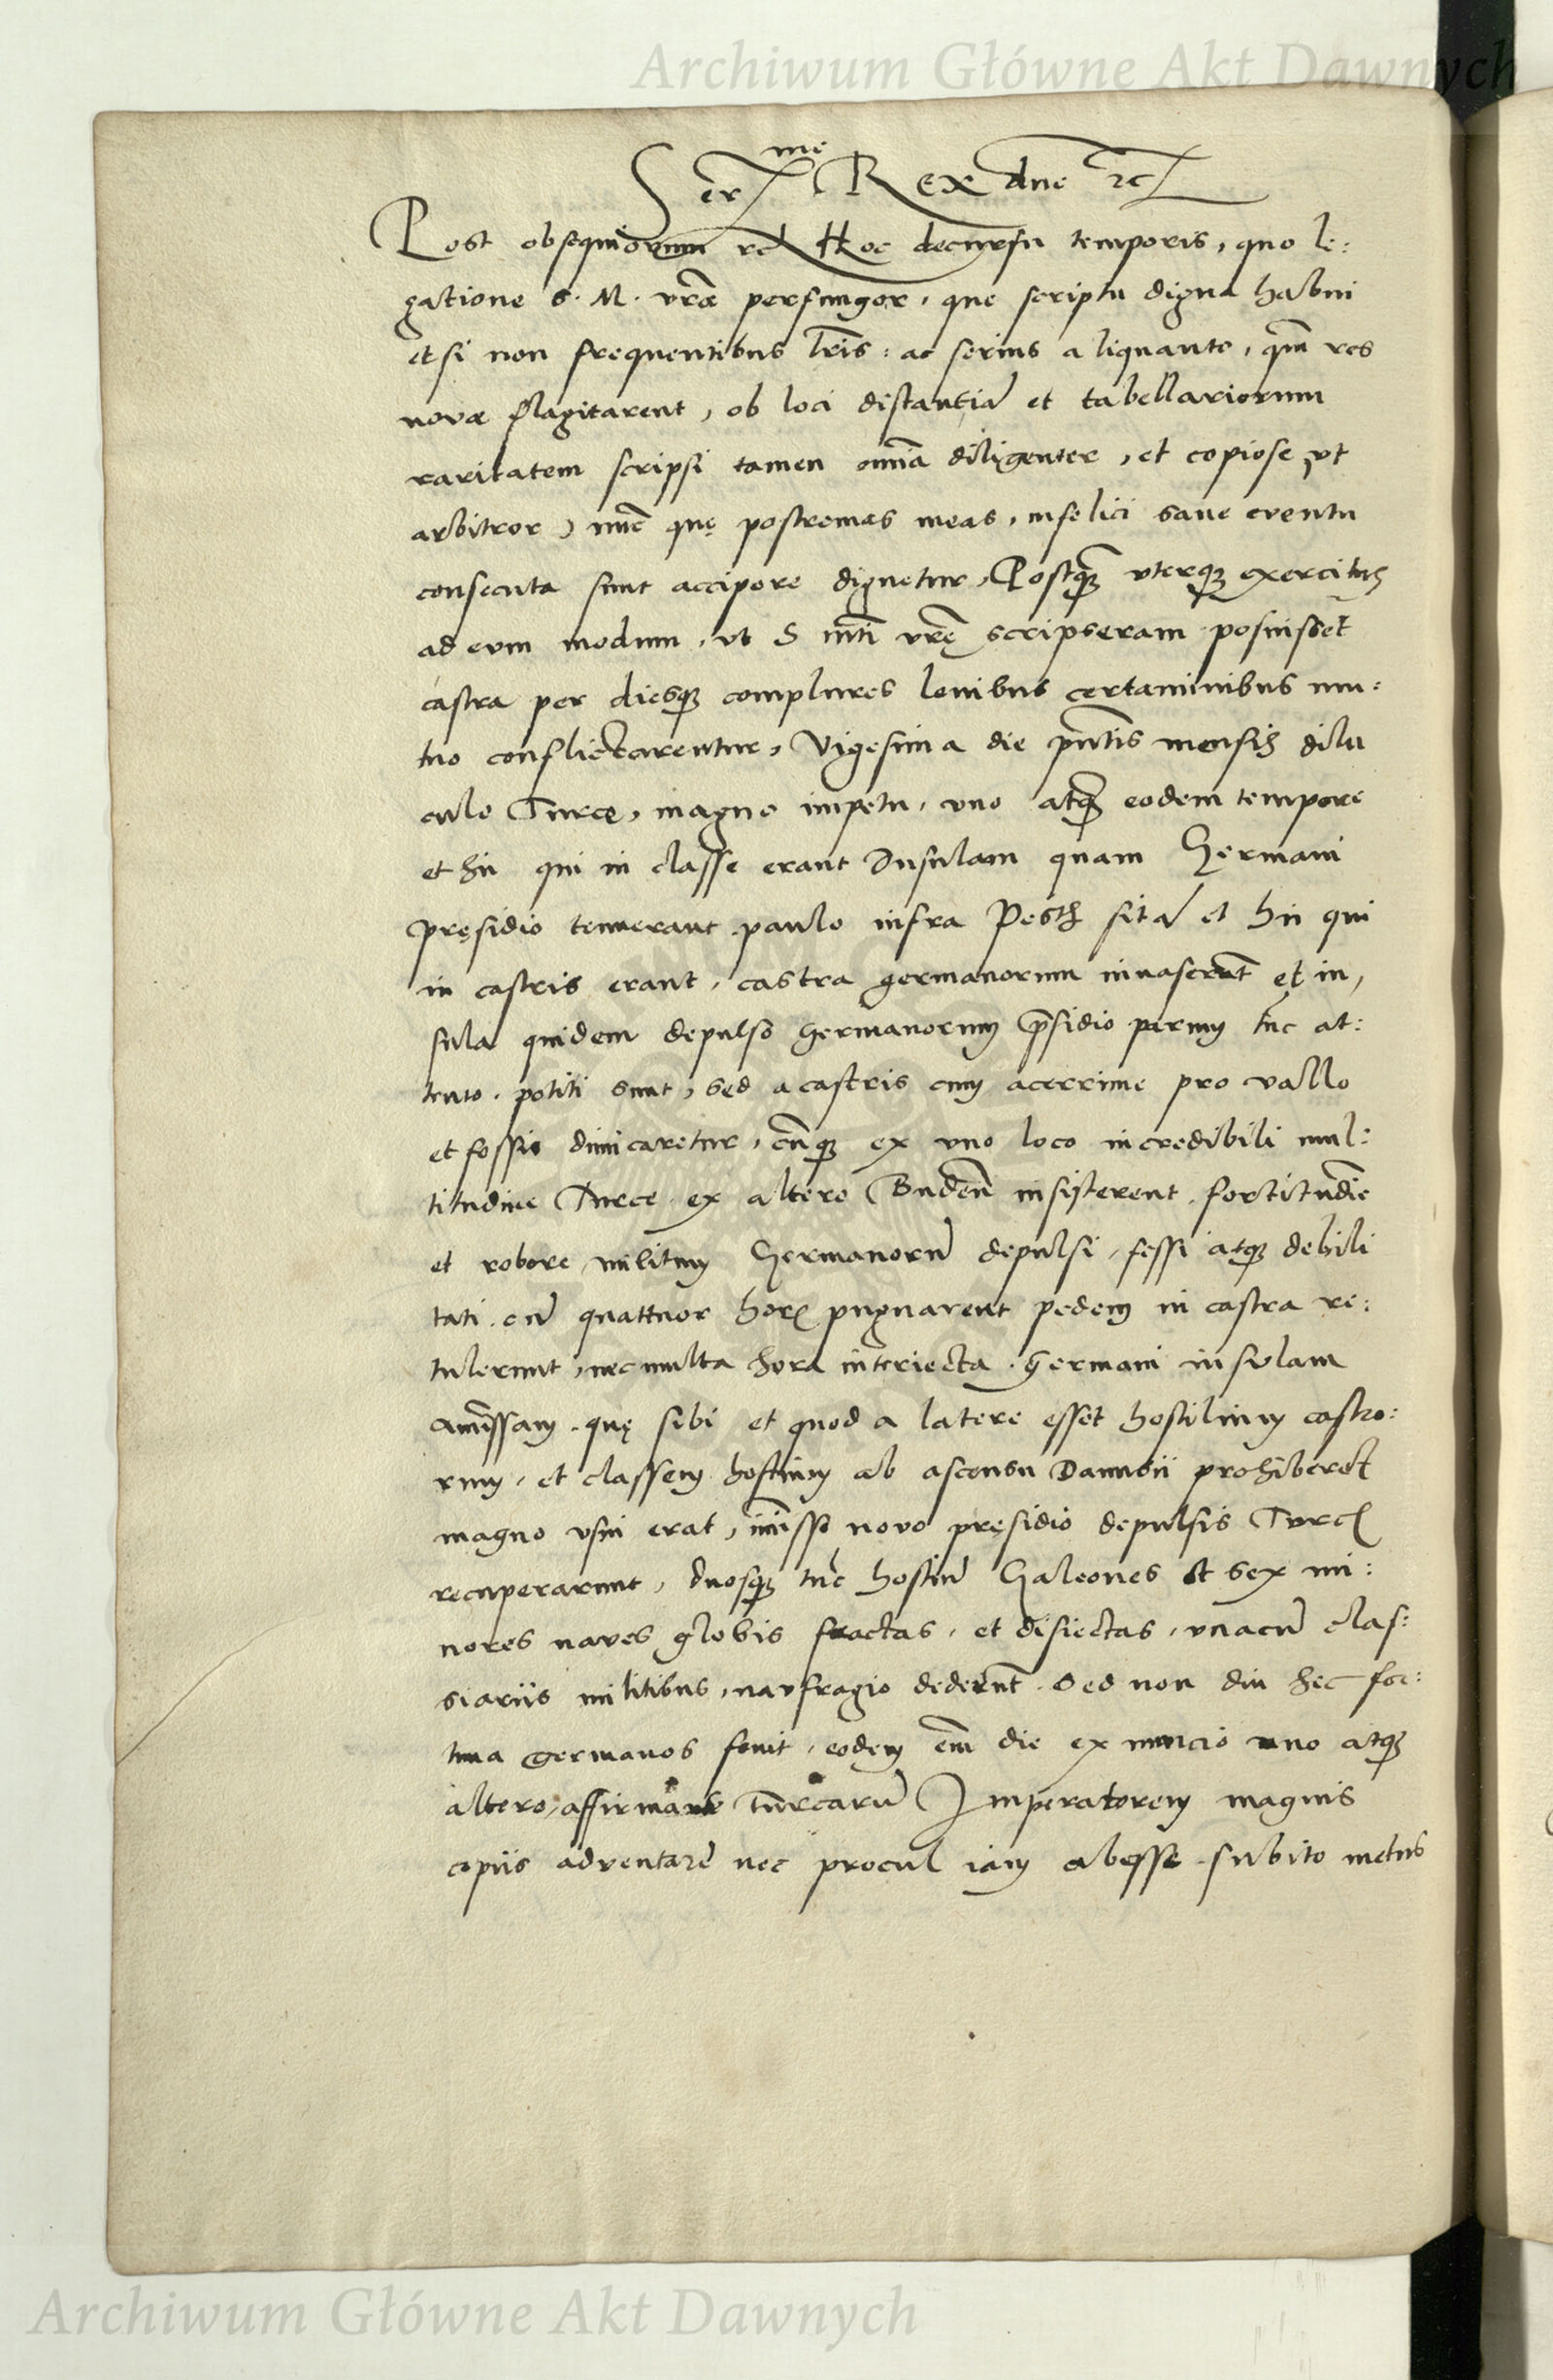 Archiwum Główne Akt Dawnych
Ser^me Rex dne etc
Post obsequiorum etc Hoc decursu temporis, quo le:
gatione S. M. vrae perfungor, que scriptu digna habui
et si non frequentibus lris: ac serius aliquanto, qm res
novae flagitarent, ob loci distantia et tabellariorum
raritatem scripsi tamen omnia diligenter, et copiose, vt
arbitror, nunc quę postremas meas, infelici sane eventu
consecuta sunt accipere dignetur, Postqm vterq exercitus
ad eum modum, vt S mti vrę scripseram posuisset
castra per diesq complures levibus certaminibus mu:
tuo conflictarentur, Vigesima die pntis mensis dilu
culo Turcę, magno impetu, vno atq eodem tempore
et hii qui in classe erant Insulam quam Germani
pręsidio tenuerant paulo infra Pesth sita et hii qui
in castris erant, castra germanorum invaserunt et in,
sula quidem depulso germanorum psidio parum tunc at:
tento. potiti sunt, sed a castris cum acerrime pro vallo
et fossis dimicaretur, cunq ex vno loco incredibili mul:
titudine Turce ex altero Buden insisterent fortitudie
et robore militum Germanoru depulsi, fessi atq debili
tati. cu quattuor horis pugnarent pedem in castra re:
tulerunt, nec multa hora interiecta. Germani insulam
amissam. quę sibi et quod a latere esset hostilium castro:
rum, et classem hostium ab ascensu Danubii prohiberet
magno vsui erat, imisso novo pręsidio depulsis Turcis
recuperarunt, duosq tunc hostiu Galeones et sex mi:
nores naves globis fractas, et disiectas, vnacu clas:
siariis militibus, naufragio dederunt. Sed non diu hec for:
tuna germanos fovit, eodem em die ex nuncio uno atq
altero, affirmante turcaru Imperatorem magnis
copiis adventare nec procul iam abesse. subito metus
Archiwum Główne Akt Dawnych